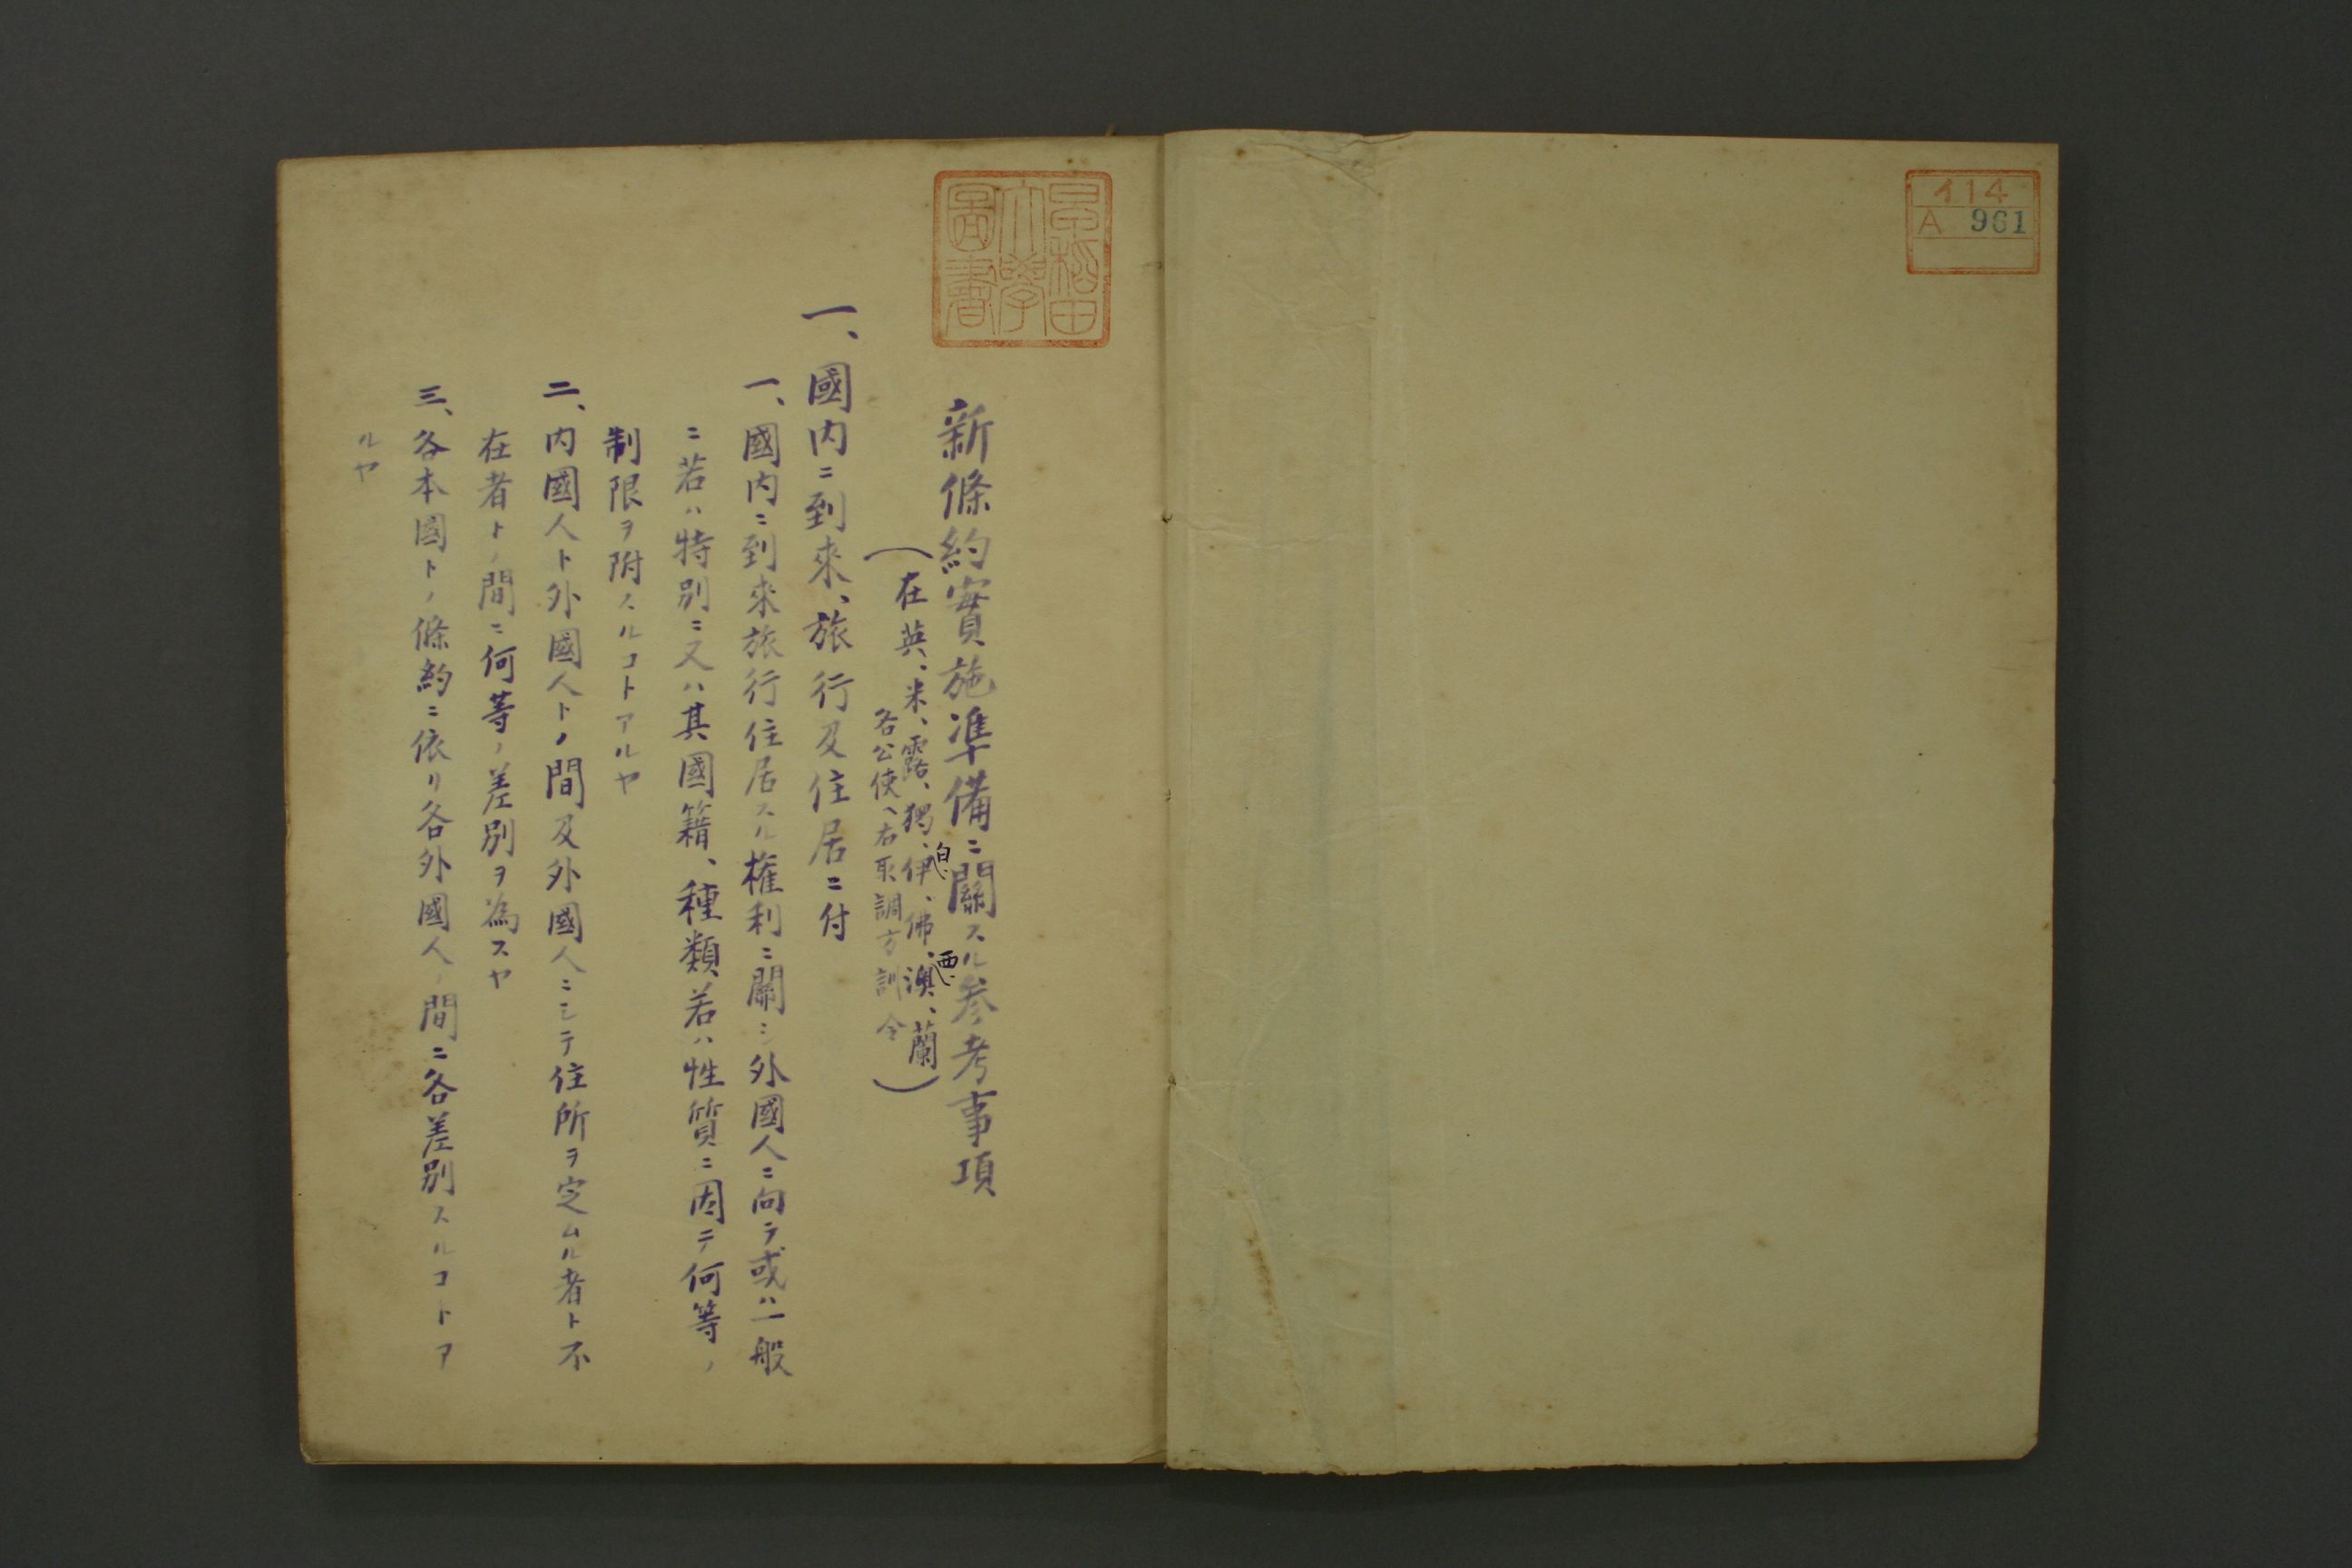 イ14
A 961
早稲田
大學
圖書
新條約實施準備ニ關スル参考事項
(在英、米、露、獨、白、伊、佛、西、澳、蘭
各公使ヘ右取調方訓令)
一、國内ニ到來、旅行及住居ニ付
一、國内ニ到來旅行住居スル権利ニ關シ外國人ニ向テ或ハ一般
ニ若ハ特別ニ又ハ其國籍、種類若ハ性質ニ因テ何等ノ
制限ヲ附スルコトアルヤ
二、内國人ト外國人トノ間及外國人ニシテ住所ヲ定ムル者ト不
在者トノ間ニ何等ノ差別ヲ為スヤ
三、各本國トノ條約ニ依リ各外國人ノ間ニ各差別スルコトア
ルヤ